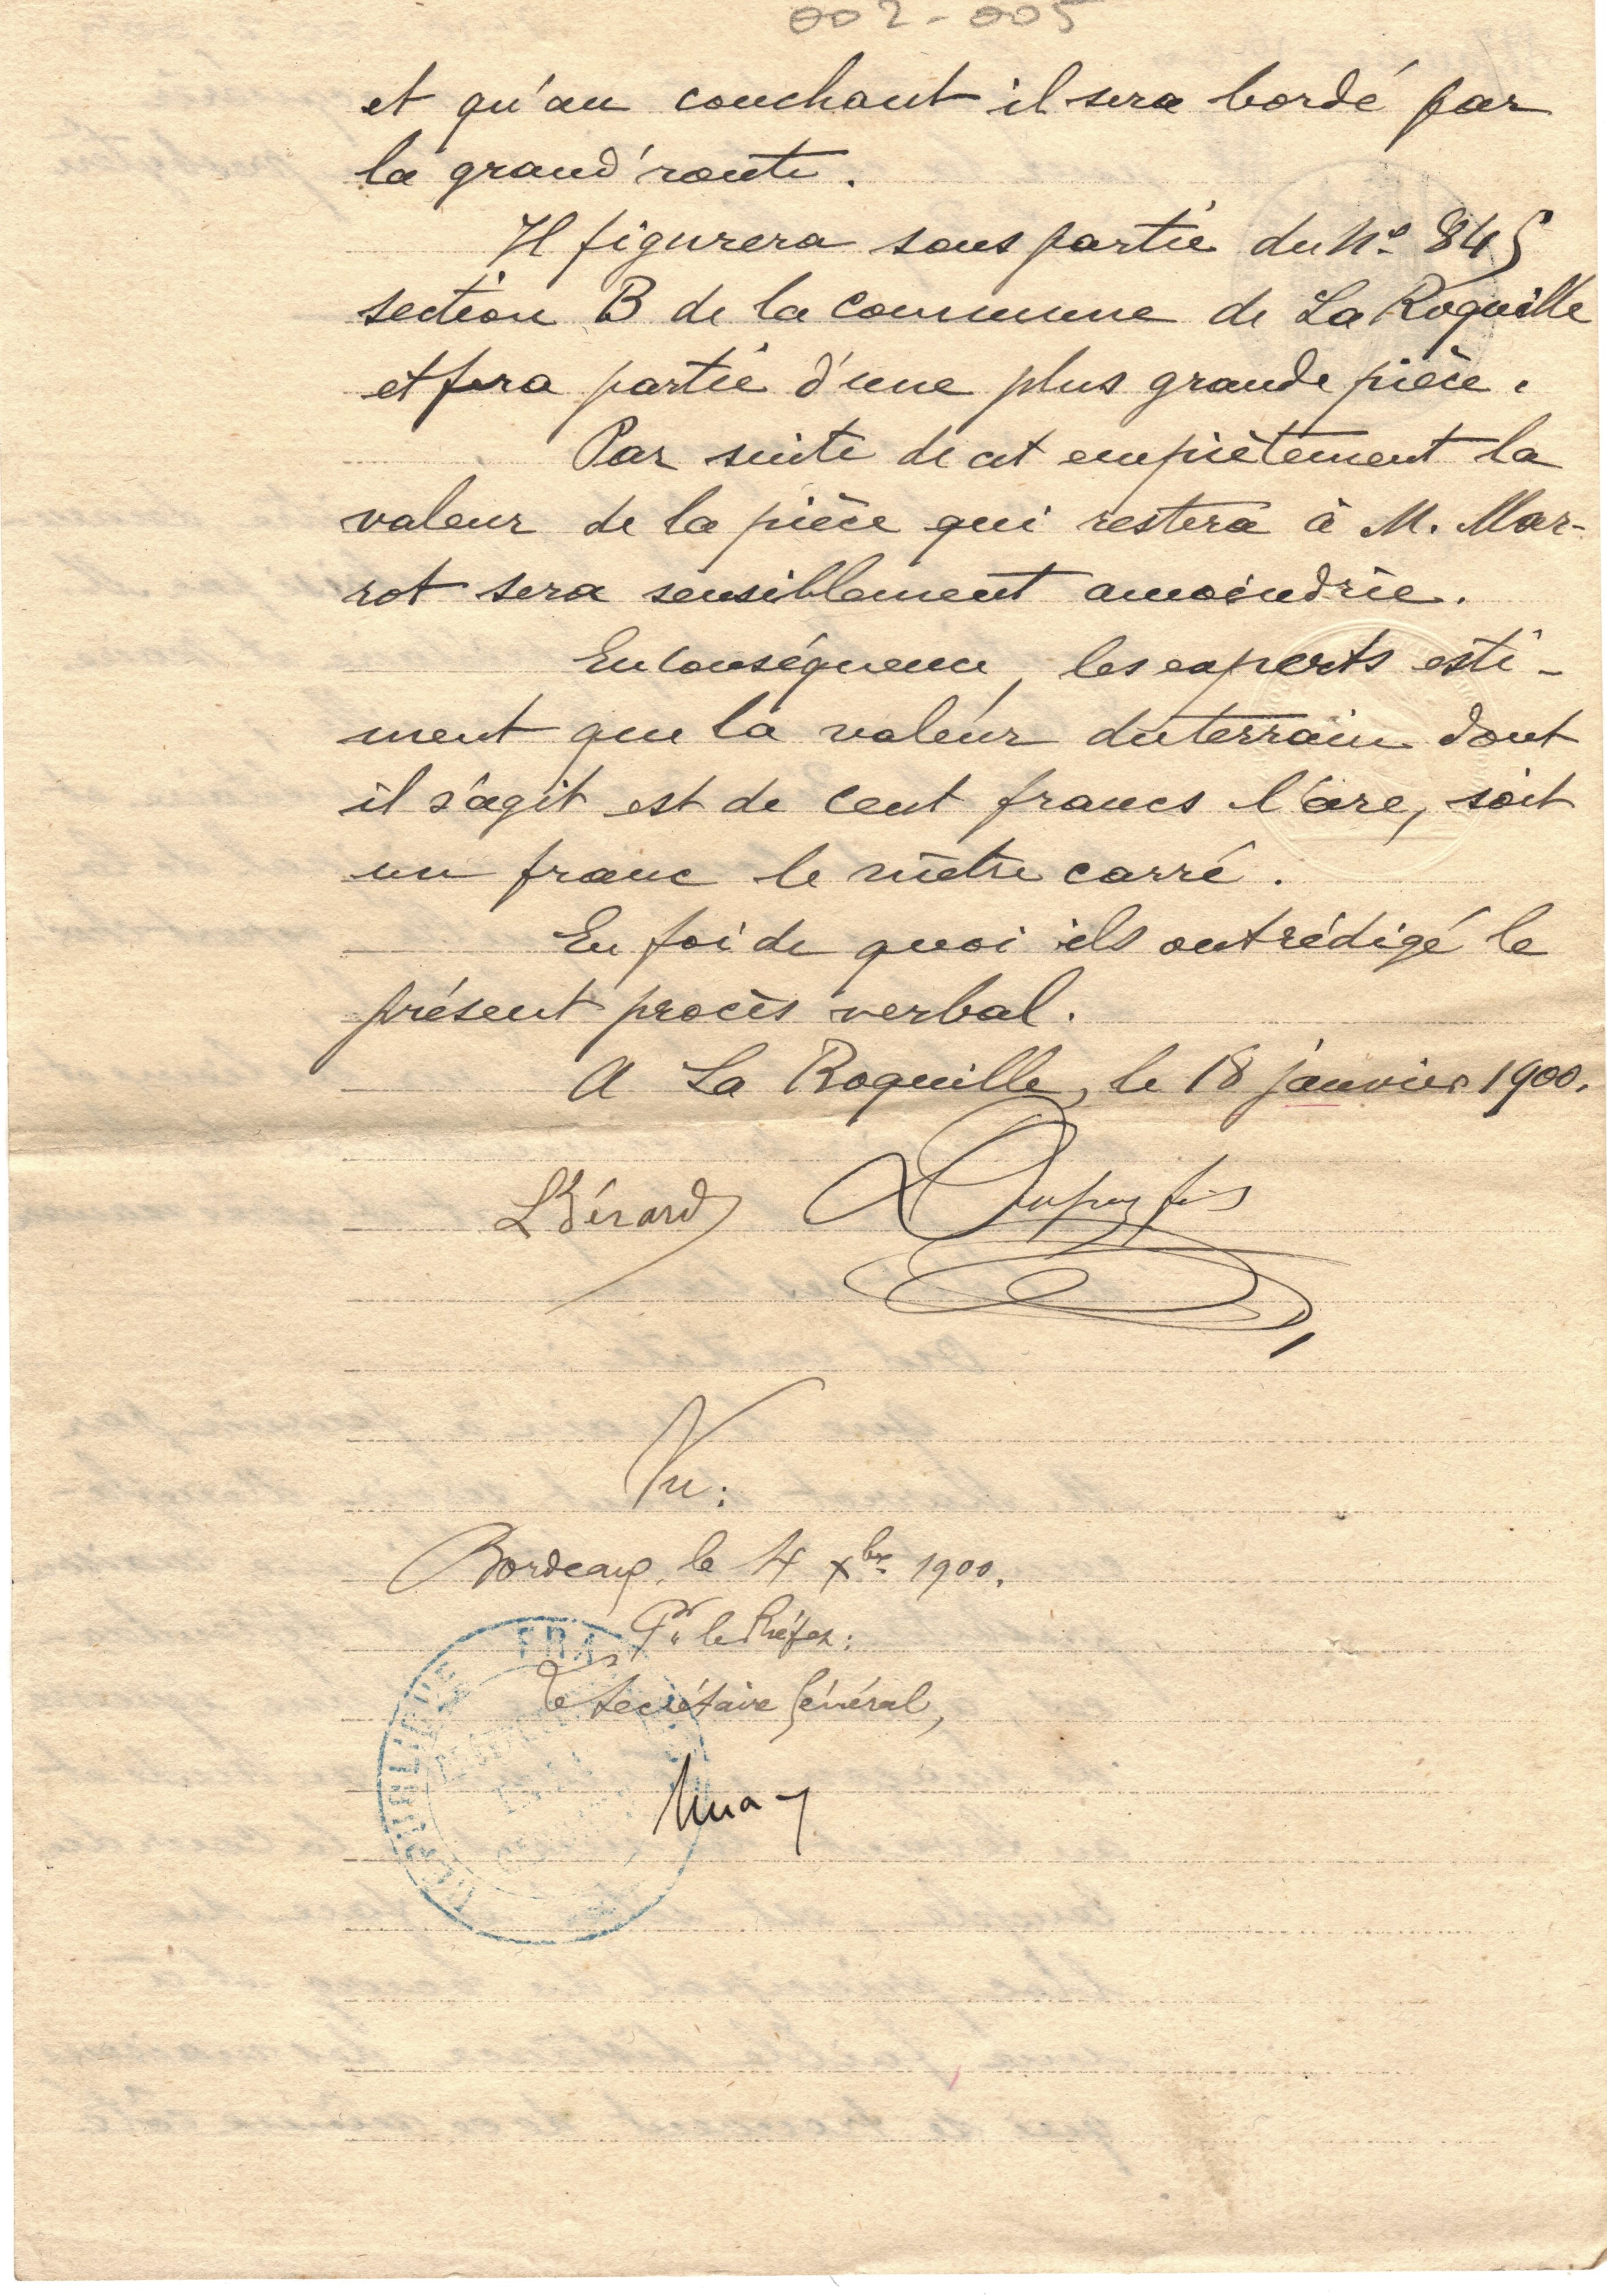 002-005
et qu'au couchant il sera bordé par
la grand'route.
Il figurera sous partie du N° 845
section B de la commune de La Roquille
et fera partie d'une plus grande pièce.
Par suite de cet empiètement la
valeur de la pièce qui restera à M. Mar-
rot sera sensiblement amoindrie.
En conséquence, les experts esti-
ment que la valeur du terrain dont
il s'agit est de cent francs l'are, soit
un franc le mètre carré.
En foi de quoi ils ont rédigé le
présent procès verbal.
A La Roquille, le 18 janvier 1900.
LBérard Dupuy fils
Vu:
Bordeaux, le 4 Xbre 1900.
Pr le Préfet:
Le Secrétaire Général,
REPUBLIQUE FRA